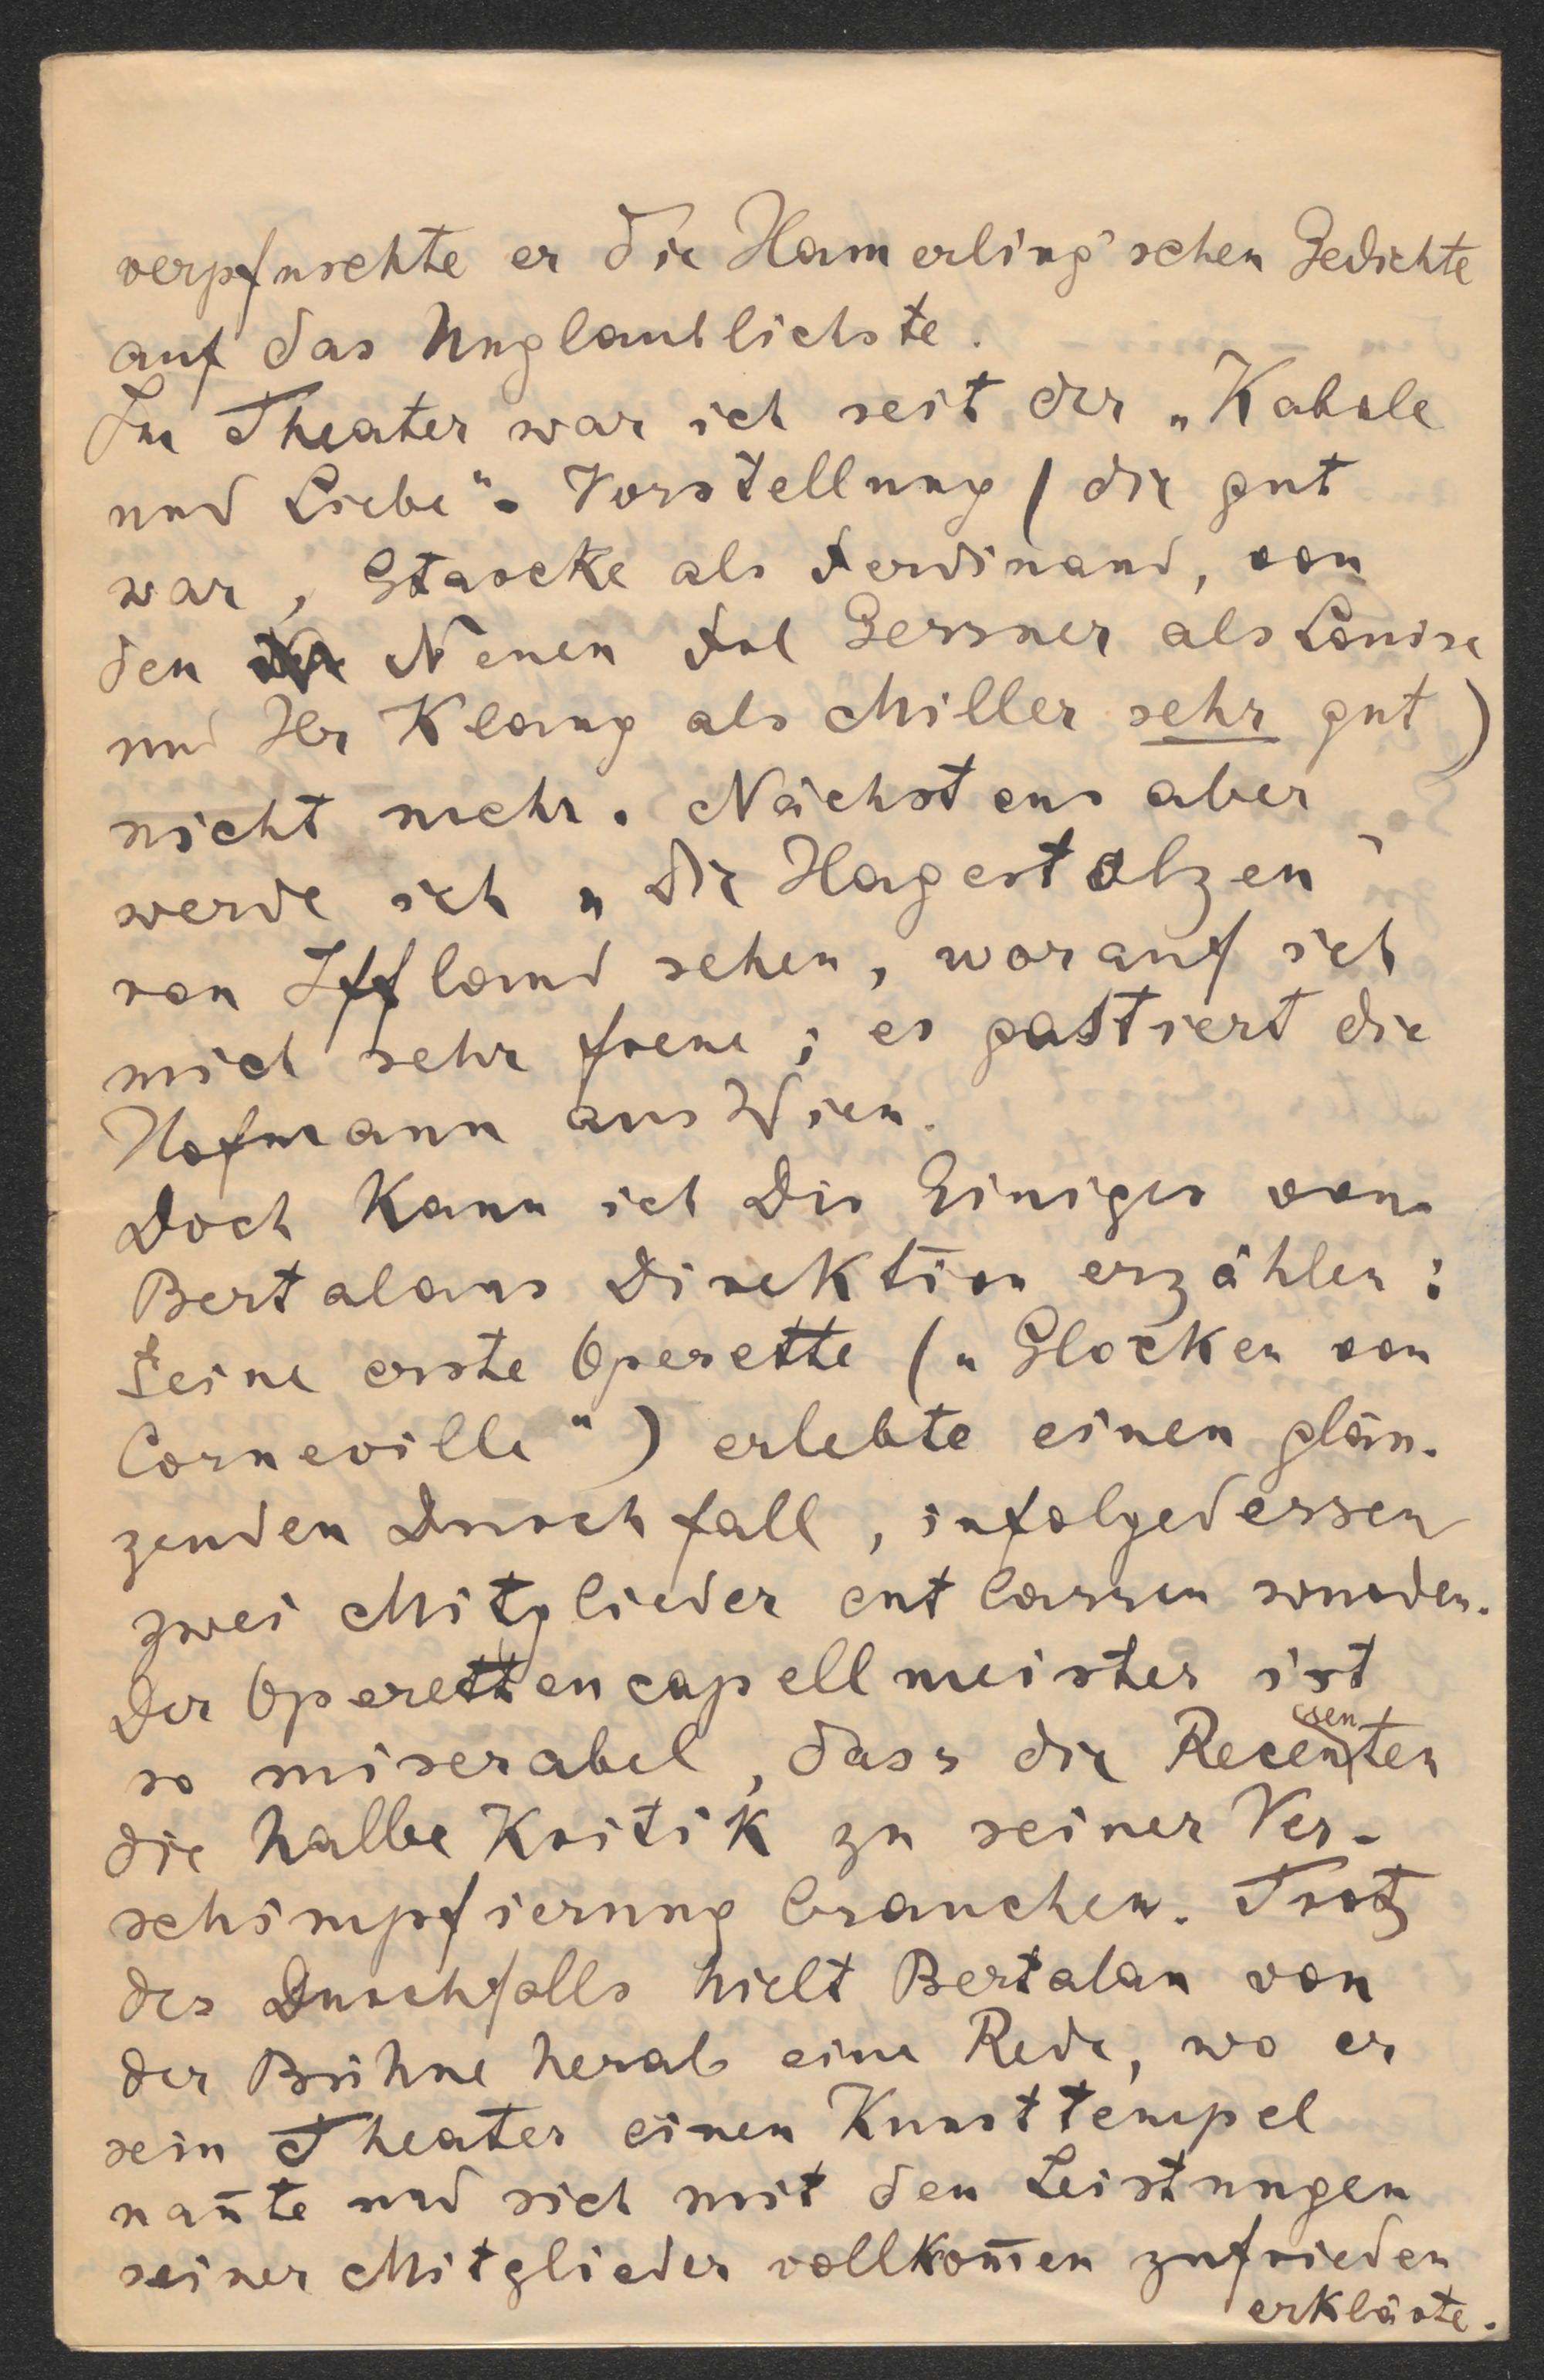 verpfuschte er die Hamerling'schen Gedichte
auf das Unglaublichste.
Im Theater war ich seit der „Kabale
und Liebe"-Vorstellung (die gut
war, Starcke als Ferdinand, von
den Neuen Frl Gerssner als Louise
und Hr Klang als Miller sehr gut)
nicht mehr. Nächstens aber
werde ich „die Hagestolzen"
von Iffland sehen, worauf ich
mich sehr freue; es gastiert die
Hofmann aus Wien.
Doch kann ich Dir Einiges von
Bertalans Direktion erzählen:
Seine erste Operette („Glocken von
Corneville") erlebte einen glän-
zenden Durchfall, infolgedessen
zwei Mitglieder entlassen wurden.
Der Operettencapellmeister ist
so miserabel, dass die Recensenten
die halbe Kritik zu seiner Ver-
schimpfierung brauchen. Trotz
des Durchfalls hielt Bertalan von
der Bühne herab eine Rede, wo er
sein Theater einen Kunsttempel
nan̄te und sich mit den Leistungen
seiner Mitglieder vollkom̄en zufrieden
erklärte.